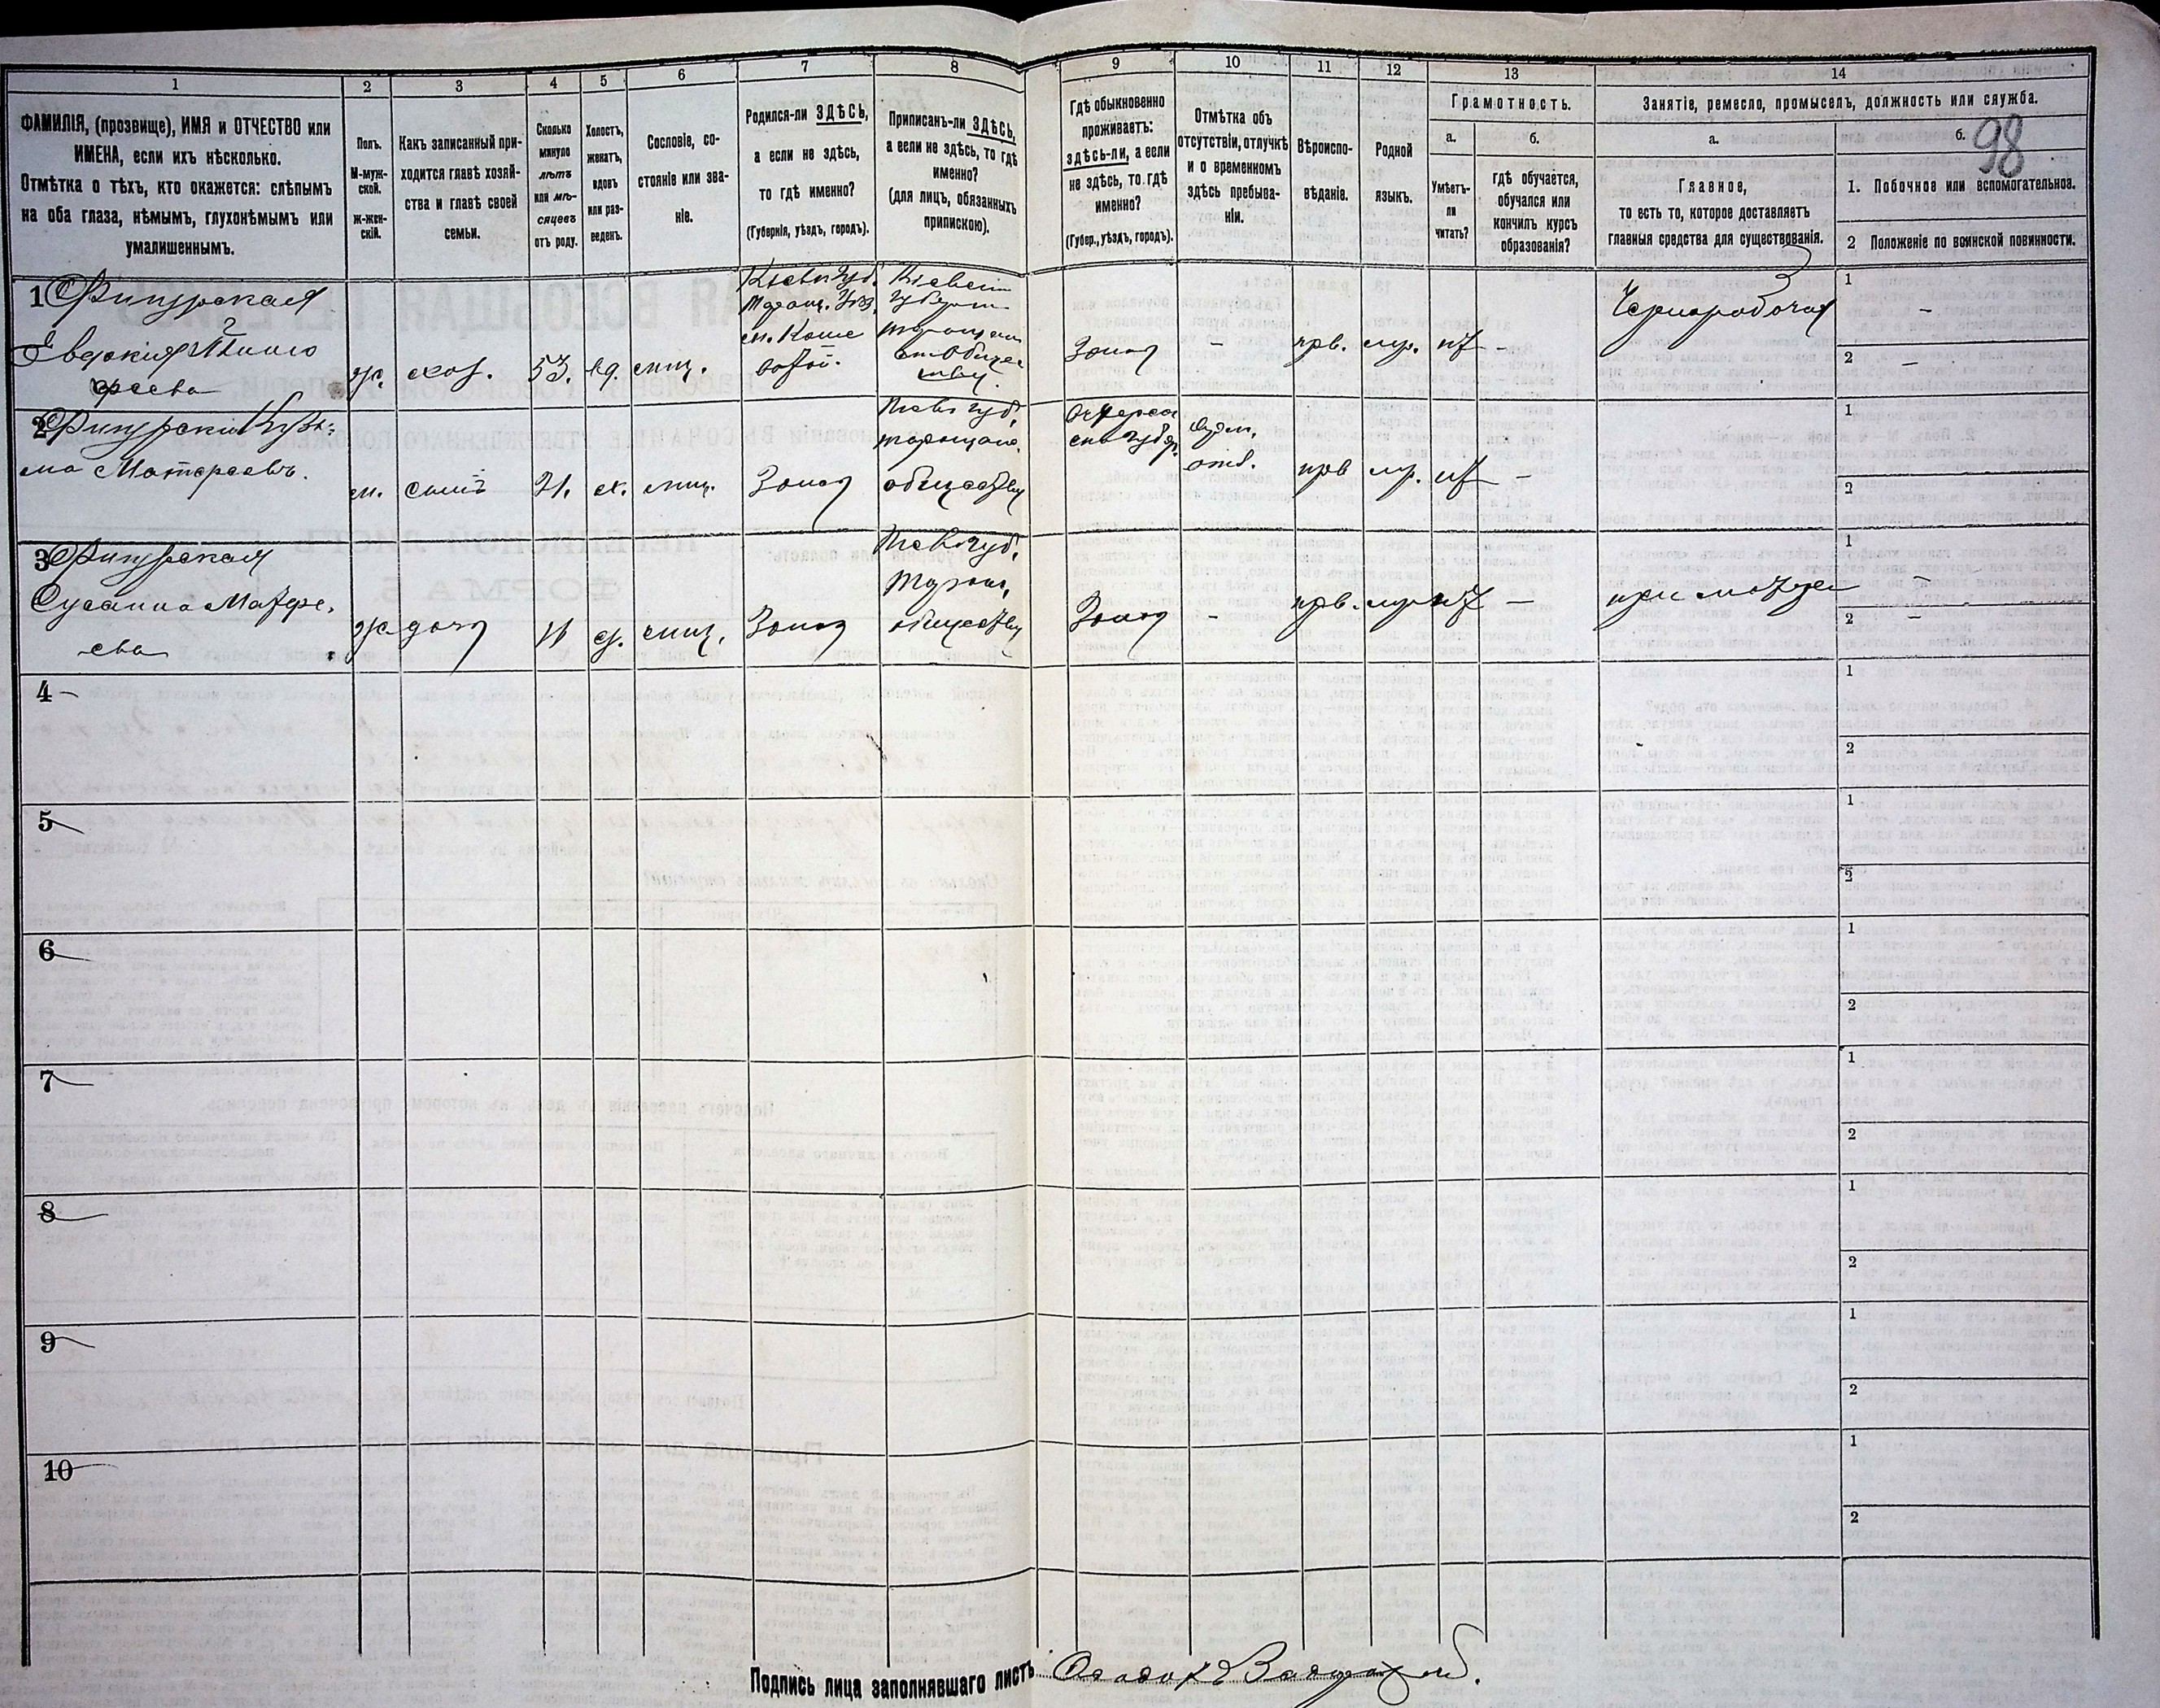 1
2
3
4
5
6
7
8
9
10
11
12
13
14
ФАМИЛІЯ, (прозвище), ИМЯ и ОТЧЕСТВО или
ИМЕНА, если ихъ нѣсколько.
Отмѣтка о тѣхъ, кто окажется: слѣпымъ
на оба глаза, нѣмымъ, глухонѣмымъ или
умалишеннымъ.
Полъ.
М-муж-
ской.
ж-жен-
скій.
Какъ записанный при-
ходится главѣ хозяй-
ства и главѣ своей
семьи.
Сколько
минуло
лѣтъ
или мѣ-
сяцевъ
отъ роду.
Холостъ,
женатъ,
вдовъ
или раз-
веденъ.
Сословіе, со-
стояніе или зва-
ніе.
Родился-ли ЗДѢСЬ,
а если не здѣсь,
то гдѣ именно?
(Губернія, уѣздъ, городъ).
Приписанъ-ли ЗДѢСЬ,
а если не здѣсь, то гдѣ
именно?
(для лицъ, обязанныхъ
припискою).
Гдѣ обыкновенно
проживаетъ:
здѣсь-ли, а если
не здѣсь, то гдѣ
именно?
(Губер., уѣздъ, городъ).
Отмѣтка объ
отсутствіи, отлучкѣ
и о временномъ
здѣсь пребыва-
ніи.
Вѣроиспо-
вѣданіе.
Родной
языкъ.
Грамотность.
а.
б.
Умѣетъ-
ли
читать?
гдѣ обучается,
обучался или
кончилъ курсъ
образованія?
Занятіе, ремесло, промыселъ, должность или служба.
а.
б.
98
Главное,
то есть то, которое доставляетъ
главныя средства для существованія.
1. Побочное или вспомогательное.
2 Положеніе по воинской повинности.
1 Фигурская
Евдокія
ж.
хоз.
53.
вд.
мищ.
Кіевск. Губ.
Таращ. Уѣз.
м. Коше
ватой.
Кіевской
Таращан
Зонаг
-
прв.
мр.
нѣ
-
Чернорабочая
1
-
2
-
2 Фигурскій Кузь-
ма Матфеевъ.
м.
сынъ
21.
х.
мищ.
Кіев. губ.
таращан.
обществу
губер.
прв
мр.
нѣ
-
1
2
3 Фигурская
Сусанна Матфе-
ева
ж
дочь
д.
мищ.
Кіев. губ.
Таращ.
обществу
-
прв.
мр
нѣ
—
при матери
1
-
2
-
4
1
2
5
1
2
6
1
2
7
1
2
8
1
2
9
1
2
10
1
2
Подпись лица заполнявшаго листъ